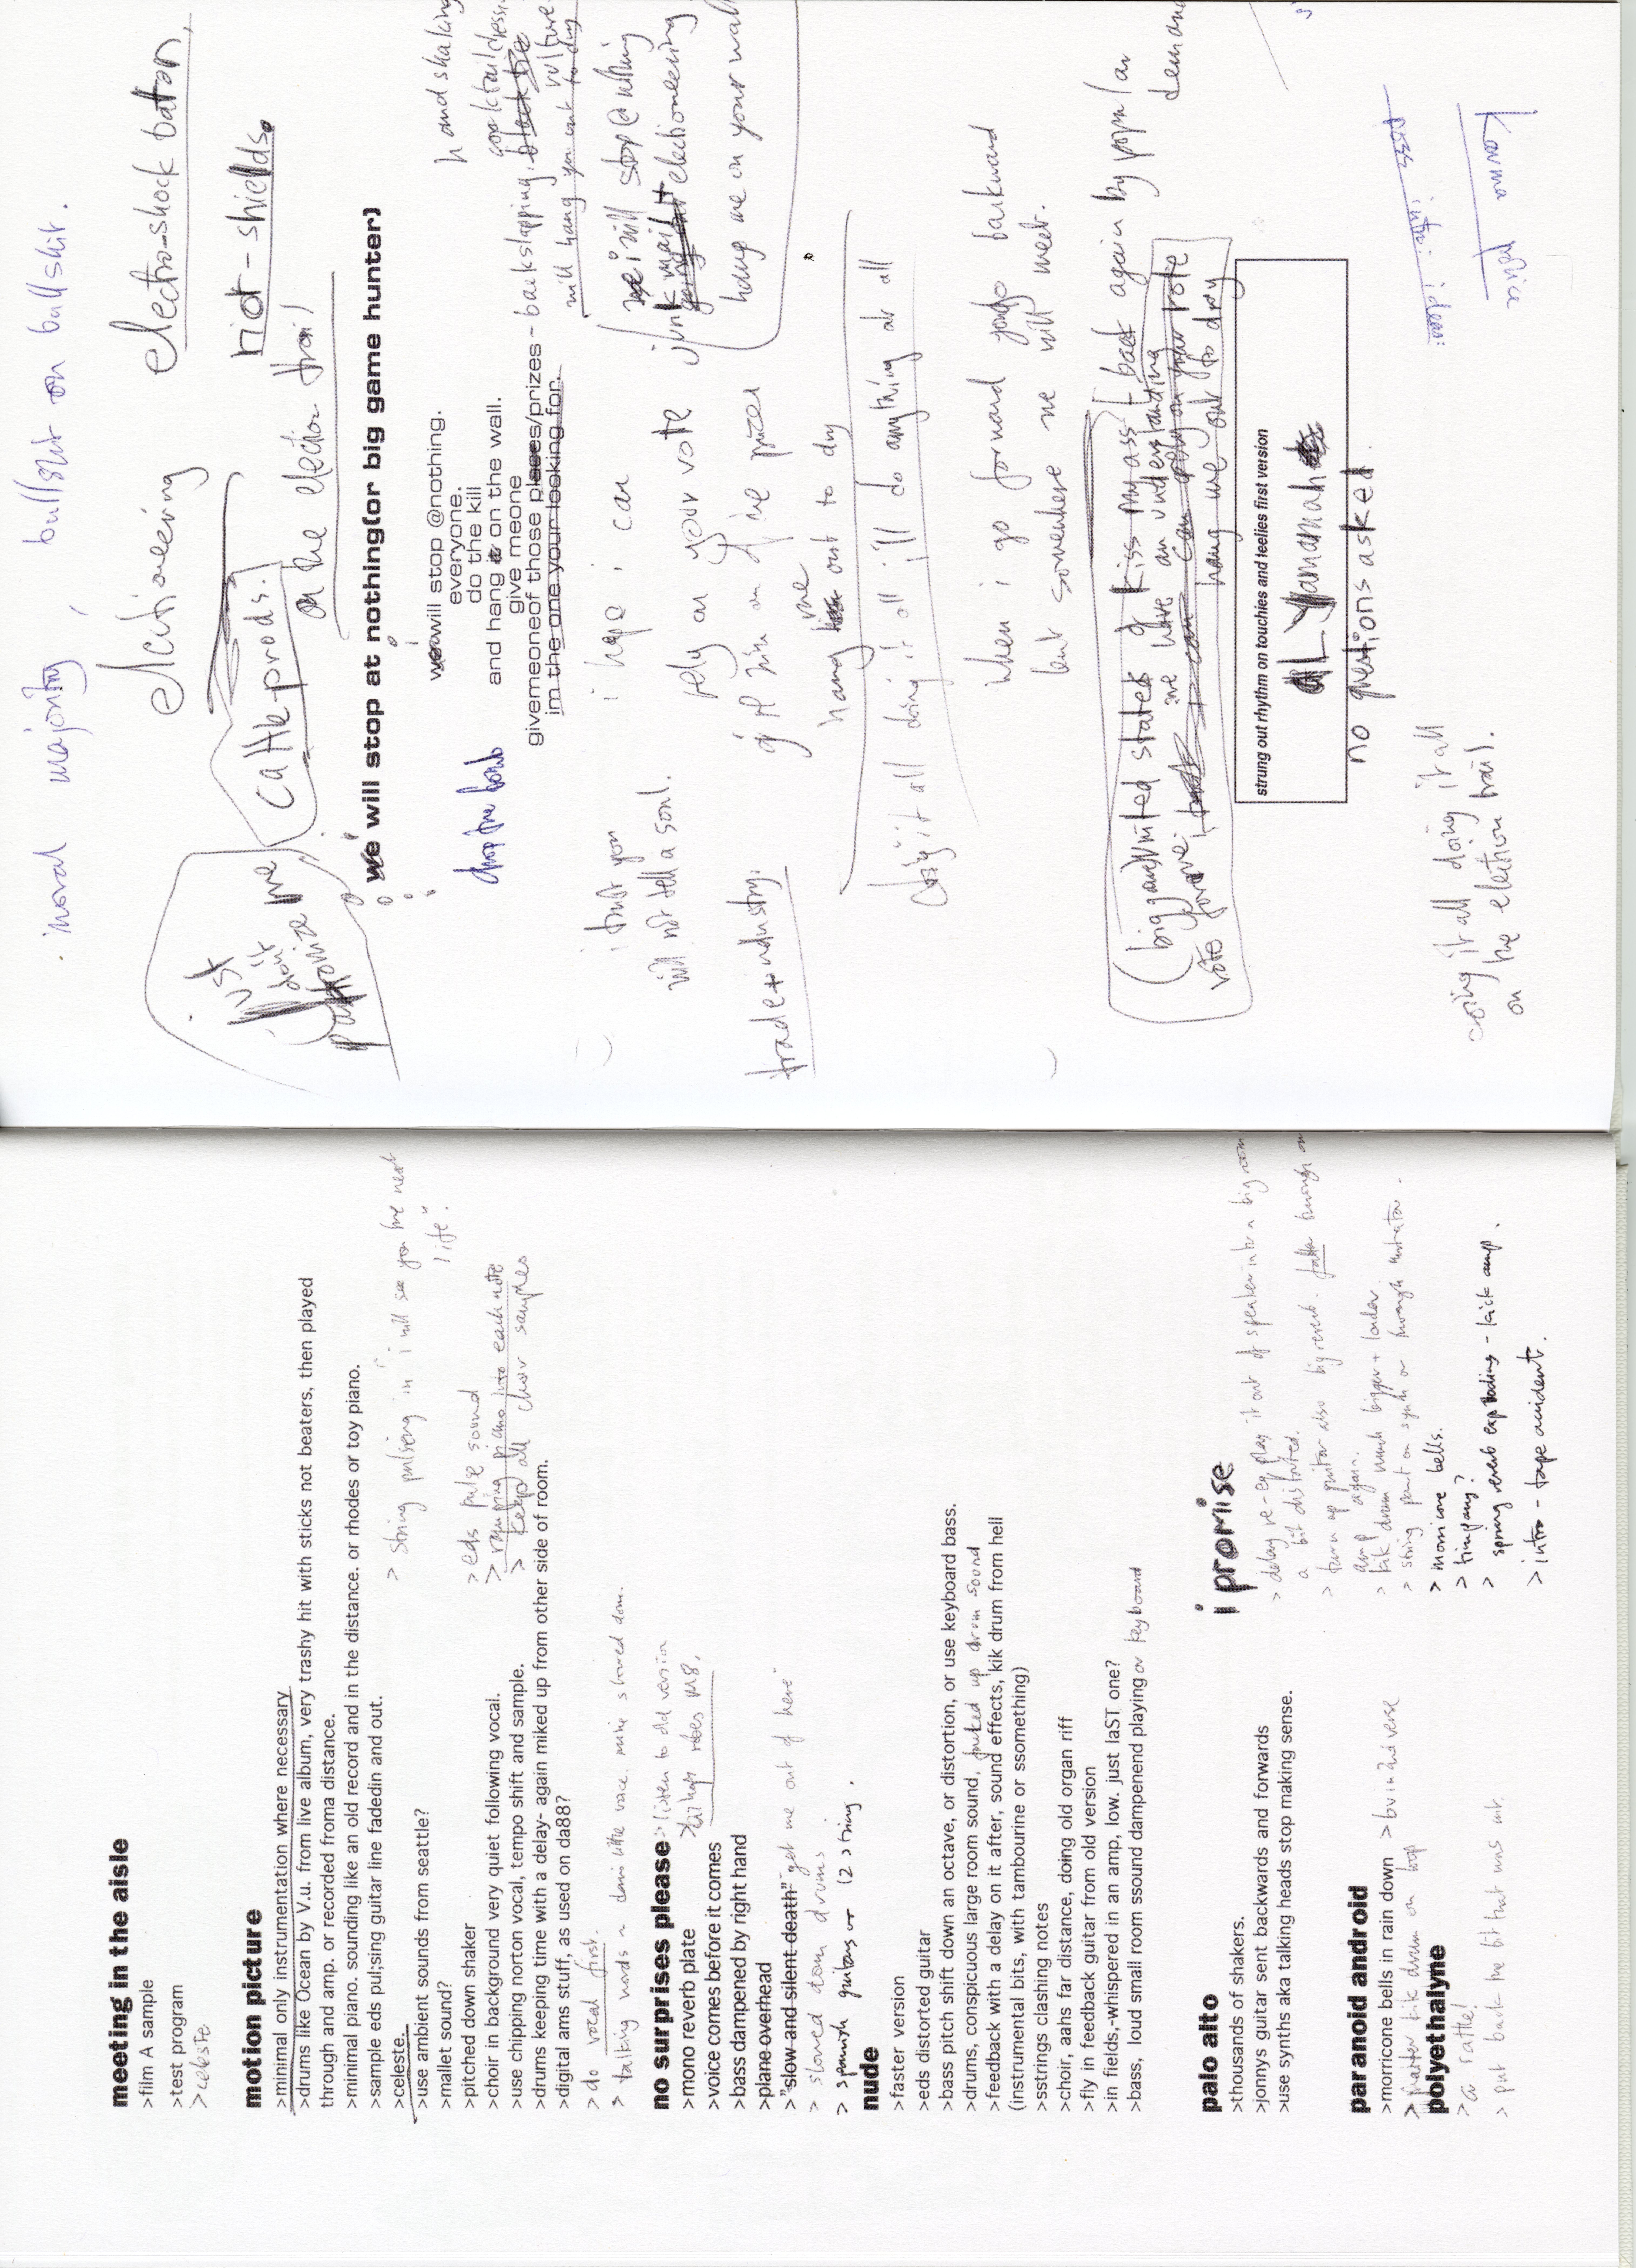 meeting in the aisle
>film A sample
>test program
>celeste
motion picture
>minimal only instrumentation where necessary
>drums like Ocean by V.u. from live album, very trashy hit with sticks not beaters, then played
through and amp. or recorded froma distance.
>minimal piano. sounding like an old record and in the distance. or rhodes or toy piano.
>sample eds pul;sing guitar line fadedin and out.
> string pulseing in "i will see you the next
life".
>celeste.
>use ambient sounds from seattle?
>mallet sound?
>pitched down shaker
> eds pulse sound
>choir in background very quiet following vocal.
> ramping piano into each note
>use chipping norton vocal, tempo shift and sample.
> keep all choir samples
>drums keeping time with a delay- again miked up from other side of room.
>digital ams stuff, as used on da88?
>do vocal first.
> talking words ~ dans little voice. mine slowed down.
no surprises please > listen to old version
>mono reverb plate
>perhaps rides M8.
>voice comes before it comes
>bass dampened by right hand
>plane overhead
>"slow and silent death" "get me out of here"
> slowed down drums
> spanish guitars or 12 string.
nude
>faster version
>eds distorted guitar
>bass pitch shift down an octave, or distortion, or use keyboard bass.
>drums, conspicuous large room sound, fucked up drum sound
>feedback with a delay on it after, sound effects, kik drum from hell
(instrumental bits, with tambourine or ssomething)
>sstrings clashing notes
>choir, aahs far distance, doing old organ riff
>fly in feedback guitar from old version
>in fields,-whispered in an amp, low. just laST one?
>bass, loud small room ssound dampenend playing or keyboard
palo alto
>thousands of shakers.
>jonnys guitar sent backwards and forwards
>use synths aka talking heads stop making sense.
paranoid android
>morricone bells in rain down > bv in 2nd verse
> kik drum on loop
polyethalyne
>a rattle!
> put back the bit that was cut.
i promise
> delay re-eq play it out of speaker into a big room
a bit distorted.
> turn up guitar also big reverb. fatter through an
amp again.
> kik drum much bigger + louder.
> string part on synth or through
> morricone bells.
> timpany?
> spring reverb exploding - kick amp.
> intro - tape accident.
moral majority, bullshit on bullshit.
electioneering electro-shock baton,
cattle prods. riot-shields.
just don't patronize me
on the election trail
we i will stop at nothing(or big game hunter)
drop the bomb
we will stop @nothing.
everyone.
do the kill
and hang it on the wall.
give meone
givemeoneof those places/prizes
im the one your looking for.
handshaking
cocktail dress,
- backslapping, black tie
vulture
will hang you out to dry
i trust you
will not tell a soul.
trade+industry.
i hope i can
rely on your vote
hang me out to dry
we i will stop @ nothing
junk mail
going out electioneering
hang me on your wall
doing it all doing it all i'll do anything at all
when i go forward you go backward
but somewhere we will meet.
(big and) united states of kiss my ass
back again by popular
demand
we have an understanding
vote for me i can rely on your vote
hang me out to dry
strung out rhythm on touchies and feelies first version
AL Yamamah
no questions asked.
doing it all doing it all
on the election trail.